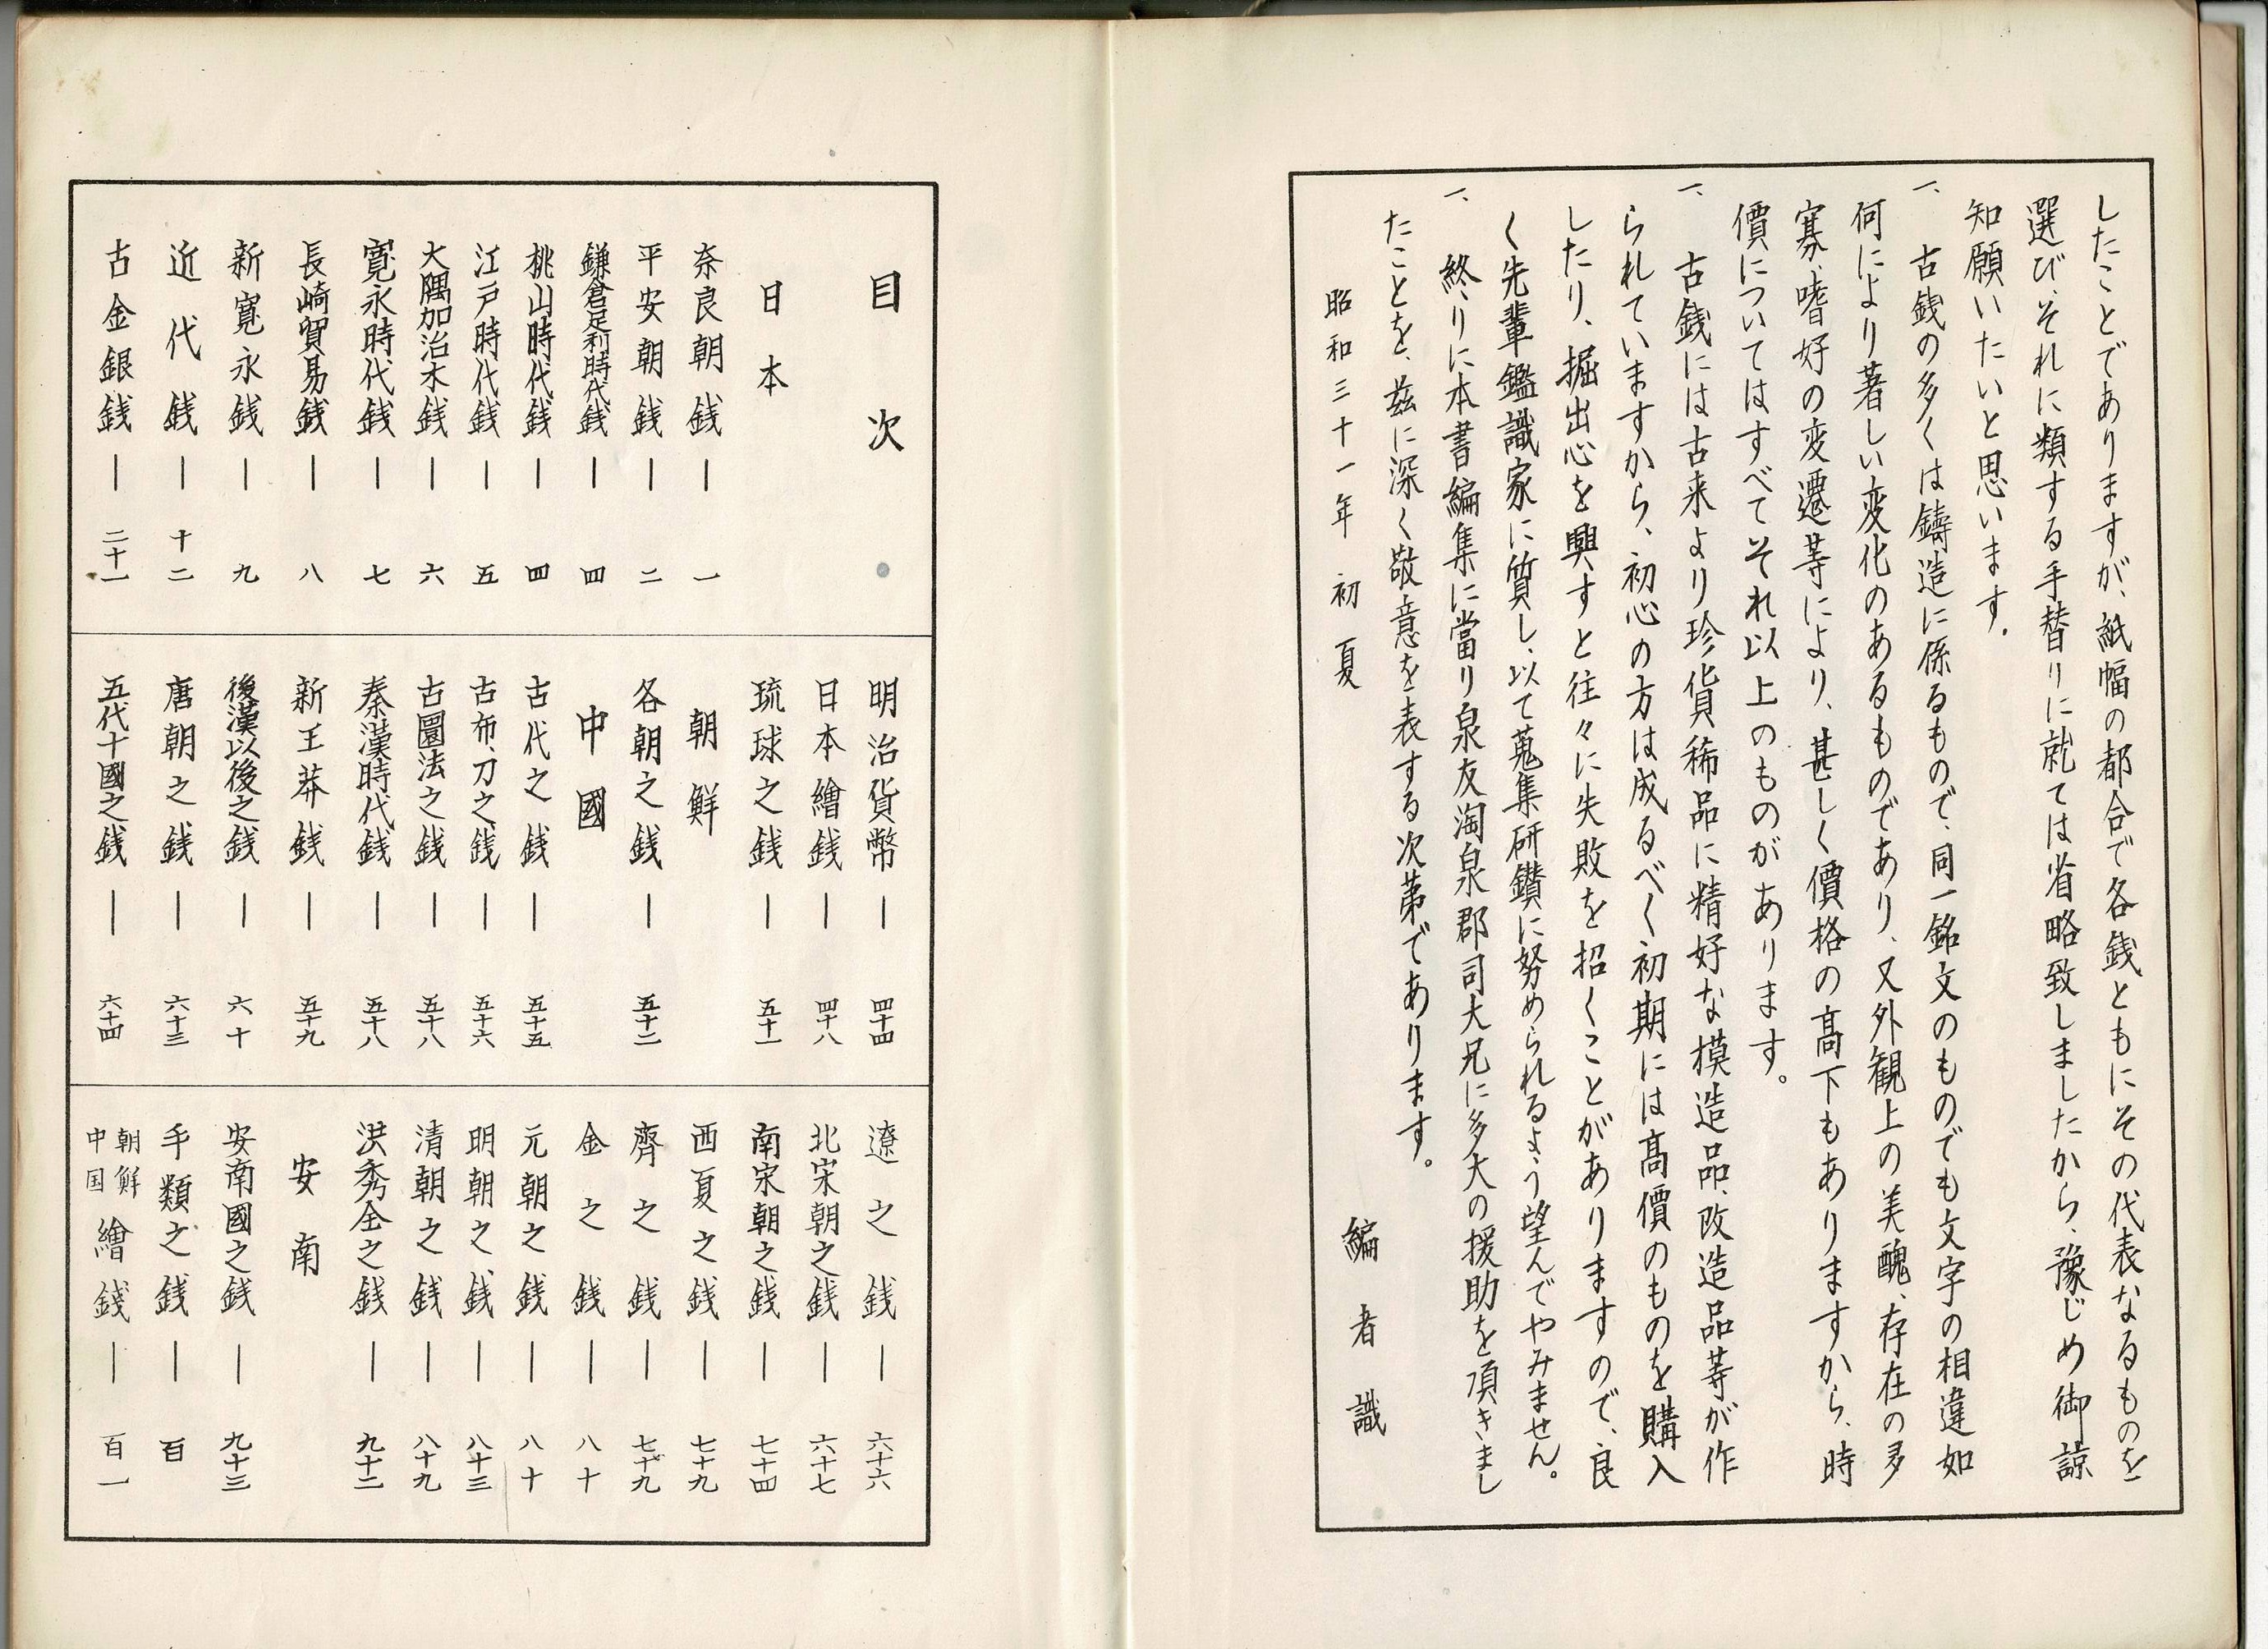 したことでありますが、紙幅の都合で各銭ともにその代表なるものを
選び、それに類する手替りに就ては省略致しましたから、豫じめ御諒
知願いたいと思います。
一、古銭の多くは鑄造に係るもので、同一銘文のものでも文字の相違如
何により著しい変化のあるものであり、又外観上の美醜、存在の多
寡、嗜好の変遷等により、甚しく價格の高下もありますから、時
價についてはすべてそれ以上のものがあります。
一、古銭には古来より珍貨稀品に精好な摸造品、改造品等が作
られていますから、初心の方は成るべく初期には高價のものを購入
したり、掘出心を興すと往々に失敗を招くことがありますので、良
く先輩鑑識家に質し、以て蒐集研鑚に努められるよう望んでやみません。
一、終りに本書編集に當り泉友淘泉郡司大兄に多大の援助を頂きまし
たことを、茲に深く敬意を表する次第であります。
昭和三十一年 初夏
編者識
目次
日本
奈良朝銭 ― 一
平安朝銭 ― 二
鎌倉足利時代銭 ― 四
桃山時代銭 ― 四
江戸時代銭 ― 五
大隅加治木銭 ― 六
寛永時代銭 ― 七
長崎貿易銭 ― 八
新寛永銭 ― 九
近代銭 ― 十二
古金銀銭 ― 二十一
明治貨幣 ― 四十四
日本繪銭 ― 四十八
琉球之銭 ― 五十一
朝鮮
各朝之銭 ― 五十二
中國
古代之銭 ― 五十五
古布、刀之銭 ― 五十六
古圜法之銭 ― 五十八
秦漢時代銭 ― 五十八
新王莽銭 ― 五十九
後漢以後之銭 ― 六十
唐朝之銭 ― 六十三
五代十國之銭 ― 六十四
遼之銭 ― 六十六
北宋朝之銭 ― 六十七
南宋朝之銭 ― 七十四
西夏之銭 ― 七十九
齊之銭 ― 七十九
金之銭 ― 八十
元朝之銭 ― 八十
明朝之銭 ― 八十三
清朝之銭 ― 八十九
洪秀全之銭 ― 九十二
安南
安南國之銭 ― 九十三
手類之銭 ― 百
朝鮮中国繪銭 ― 百一